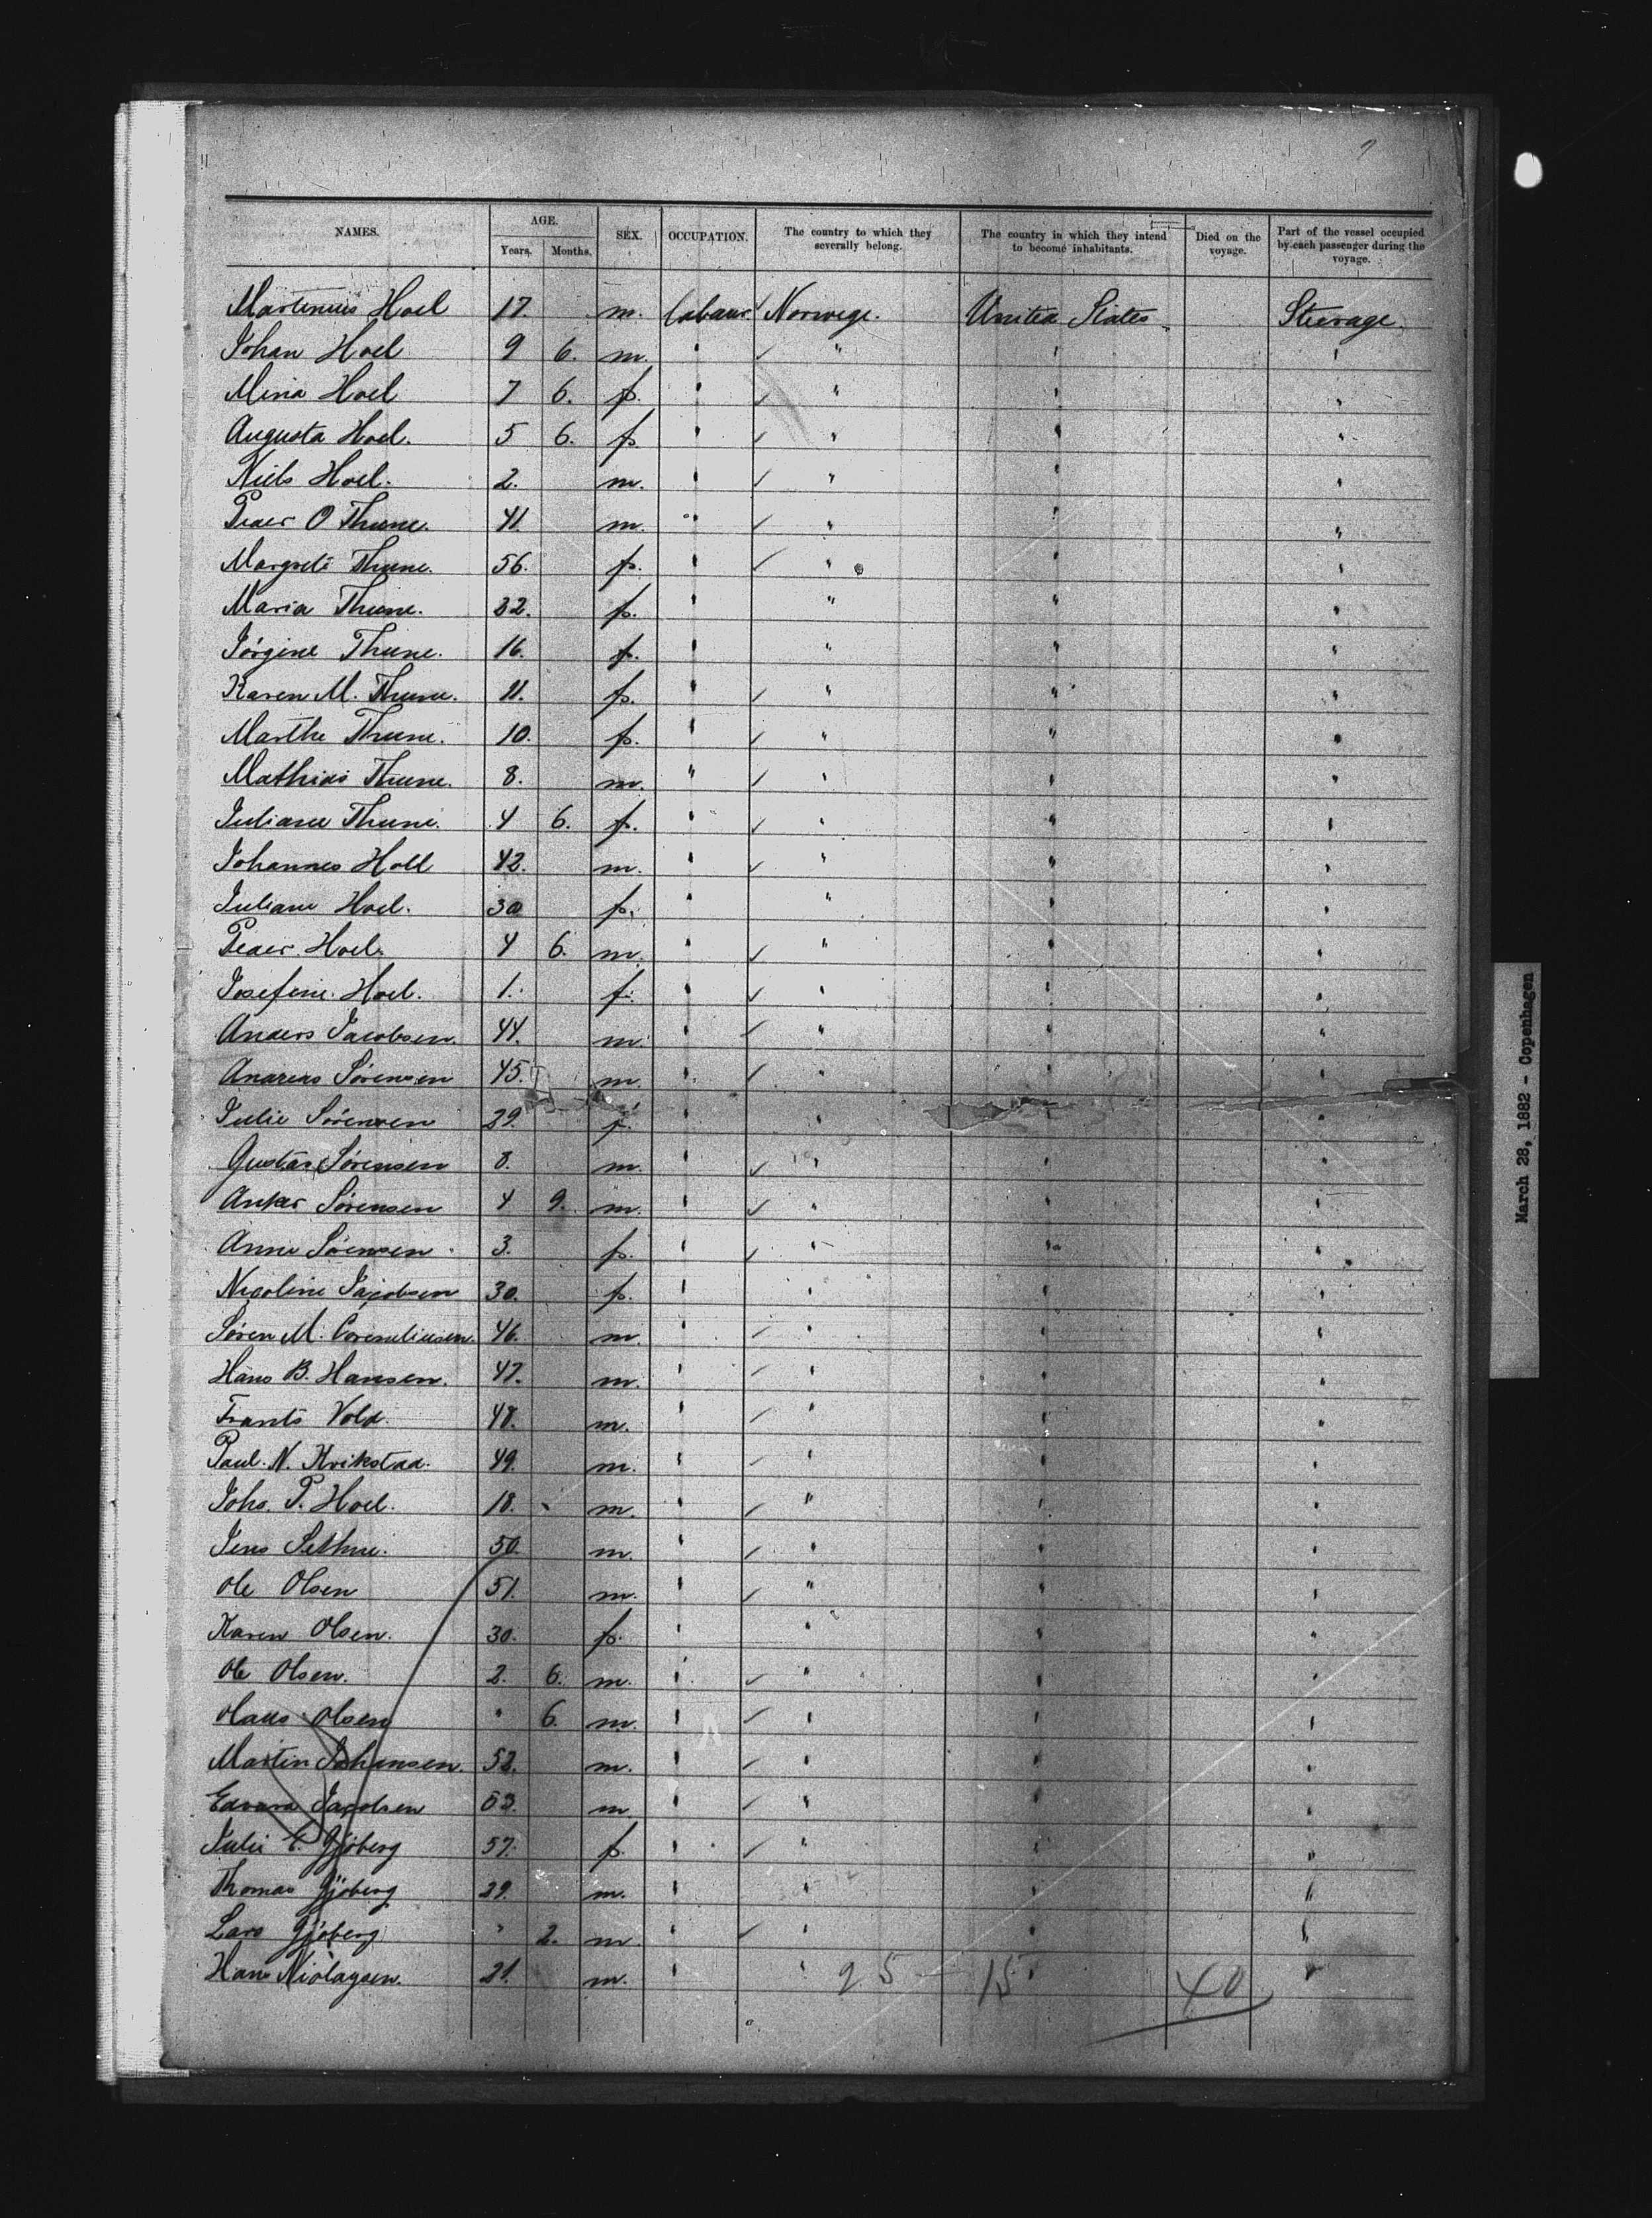 NAMES. AGE. Years. Months. SEX. OCCUPATION. The country to which they severally belong. The country in which they intend to become inhabitants. Died on the voyage. Part of the vessel occupied by each passenger during the voyage.
Martinius Hoel 17. m. labour Norwege. United States Steerage
Johan Hoel 9 6. m. " " " "
Mina Hoel 7 6. f. " " " "
Augusta Hoel. 5 6. f " " " "
Niels Hoel. 2. m. " " " "
Peder O Thune. 41. m. " " " "
Margrete Thune. 56. f. " " " "
Maria Thune. 32. f. " " " "
Jörgine Thune. 16. f. " " " "
Karen M. Thune. 11. f. " " " "
Marthe Thune. 10. f. " " " "
Mathias Thune. 8. m. " " " "
Juliane Thune. 4 6. f. " " " "
Johannes Hoel 42. m. " " " "
Juliane Hoel. 30 f. " " " "
Peder Hoel. 4 6. m. " " " "
Josefine Hoel. 1. f. " " " "
Anders Jacobsen. 44. m. " " " "
Andreas Sörensen 45. m. " " " "
Julie Sörensen 29. f. " " " "
Gustav Sörensen 8. m. " " " "
Anker Sörensen 4 9. m. " " " "
Anne Sörensen 3. f. " " " "
Nicoline Jacobsen 30. f. " " " "
Sören M. Corneliusen. 46. m. " " " "
Hans B. Hansen. 47. m. " " " "
Frants Vold 48. m. " " " "
Paul. N. Kvikstad. 49. m. " " " "
Johs. P. Hoel. 18. m. " " " "
Jens Sethne. 50. m. " " " "
Ole Olsen 51. m. " " " "
Karen Olsen. 30. f. " " " "
Ole Olsen. 2. 6. m. " " " "
Olaus Olsen " 6. m. " " " "
Martin Johansen. 52. m. " " " "
Edvard Jacobsen 53. m. " " " "
Julie E. Gjöberg 57. f. " " " "
Thomas Gjöberg 29. m. " " " "
Lars Gjöberg " 2. m. " " " "
Hans 21. m. " " " "
25 - 15 40
March 28, 1882 - Copenhagen